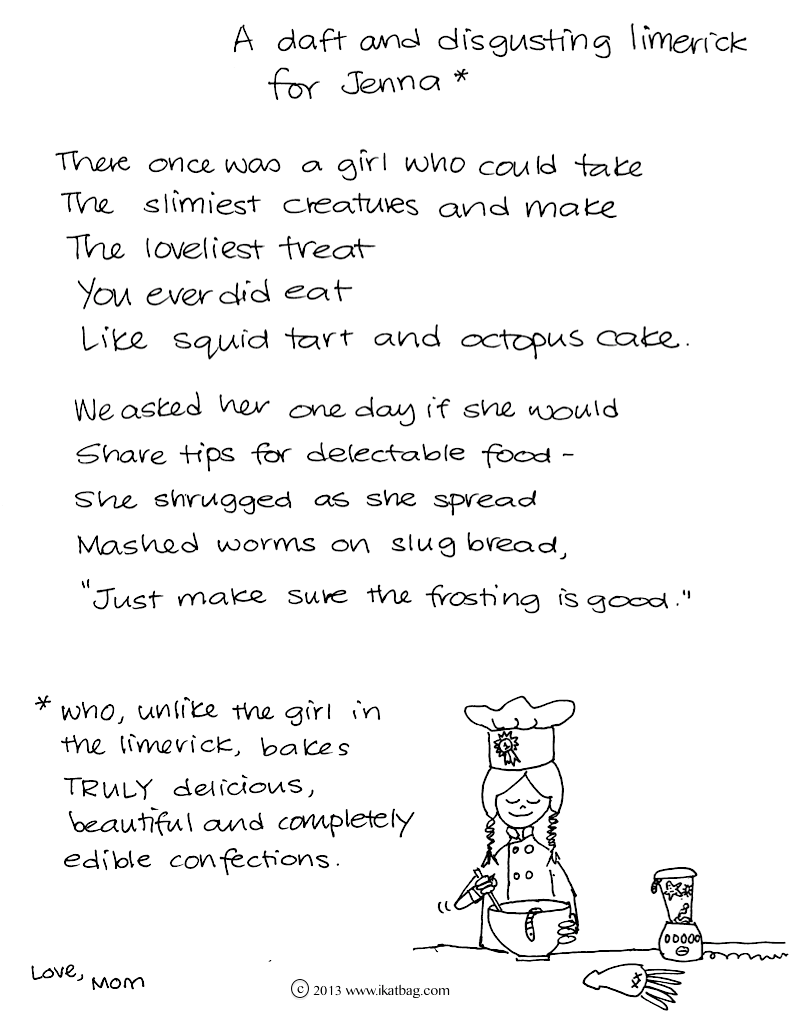 A daft and disgusting limerick
for Jenna *
There once was a girl who could take
The slimiest creatures and make
The loveliest treat
You ever did eat
Like squid tart and octopus cake.
We asked her one day if she would
Share tips for delectable food -
She shrugged as she spread
Mashed worms on slug bread,
"Just make sure the frosting is good."
* who, unlike the girl in
the limerick, bakes
TRULY delicious,
beautiful and completely
edible confections.
Love, Mom
© 2013 www.ikatbag.com